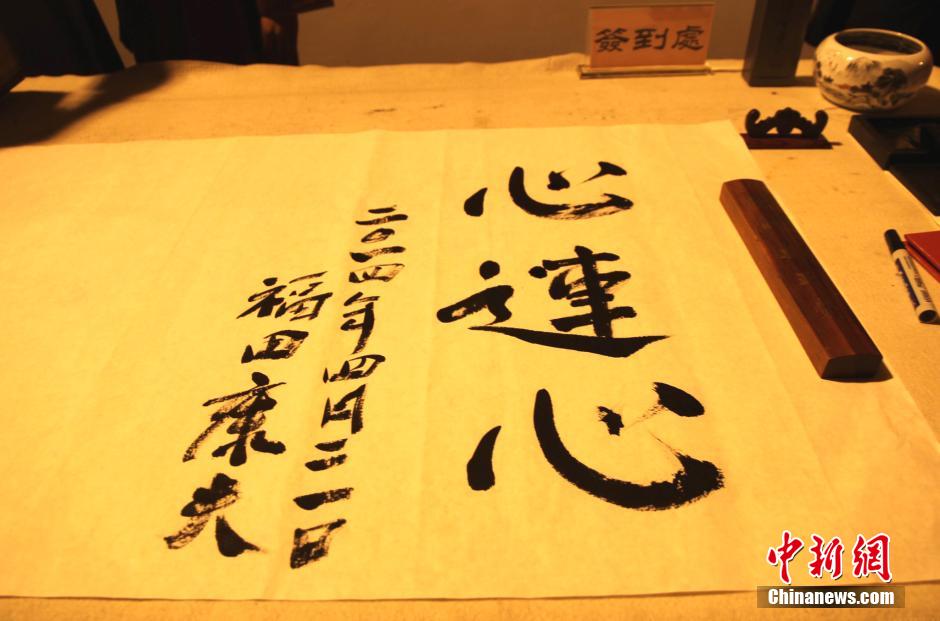 簽到處
心連心
二〇二四年四月二一日
福田康夫
中新網
Chinanews.com